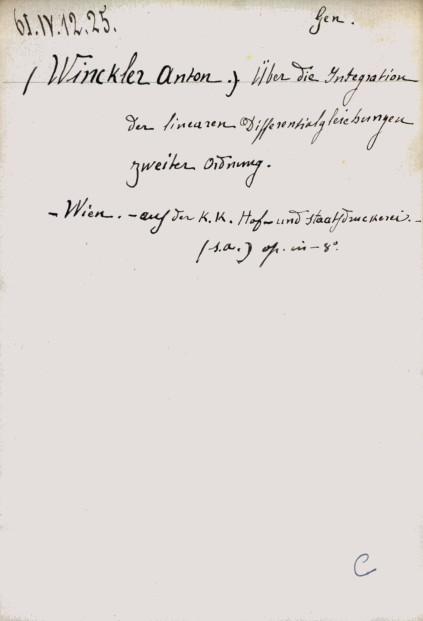 61.IV.12.25.
Gen.
(Winckler Anton.) Über die Integration
der linearen Differentialgleichungen
zweiter Ordnung.
- Wien. - auf der K.K. Hof- und Staatsdruckerei. -
(s.a.) op. in - 8°.
C